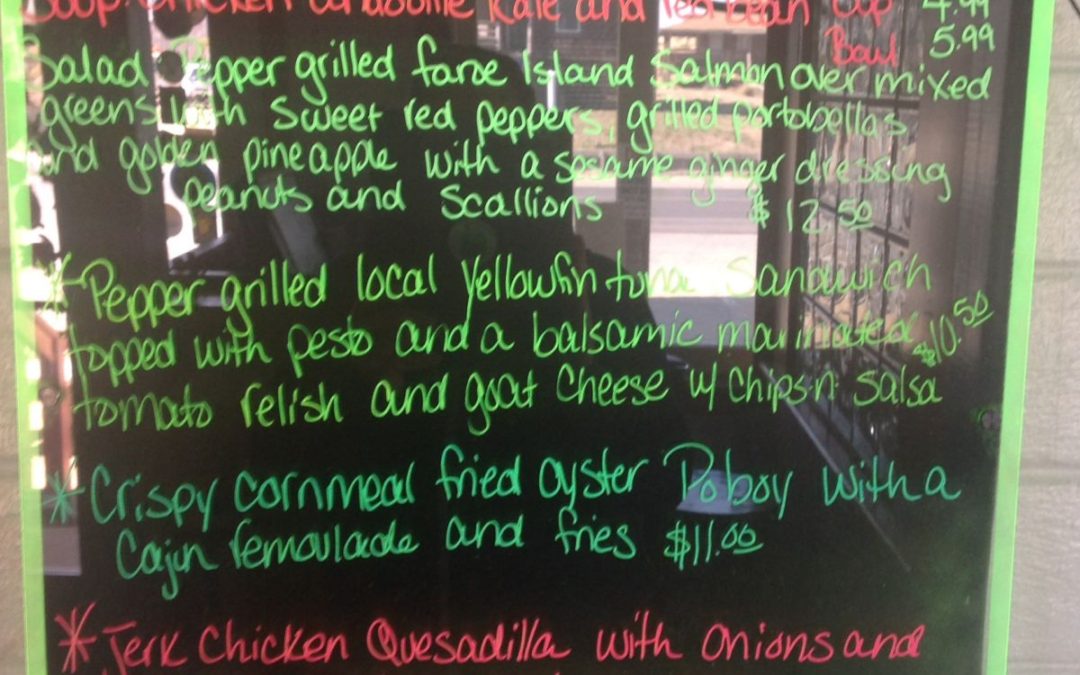 Soup: Chicken andouille Kale and red bean Cup 4.99
Bowl 5.99
Salad Pepper grilled faroe Island Salmon over mixed
greens with sweet red peppers, grilled portobellas
and golden pineapple with a sesame ginger dressing
peanuts and scallions $12.50
*Pepper grilled local yellowfin tuna Sandwich
topped with pesto and a balsamic marinated $10.50
tomato relish and goat cheese w/ chips n salsa
*Crispy cornmeal fried oyster Poboy with a
Cajun remoulade and fries $11.00
*Jerk Chicken Quesadilla with onions and